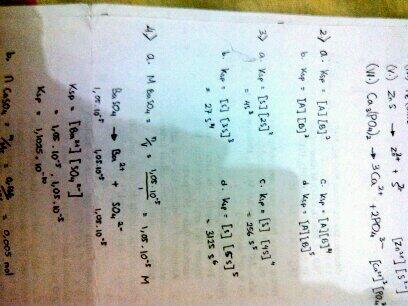 (V) ZnS → Zn²⁺ + S²⁻ [Zn²⁺][S²⁻]
(VI) Ca₃(PO₄)₂ → 3Ca²⁺ + 2PO₄³⁻ [Ca²⁺]³[PO₄
2) a. Ksp = [A][B]² c. Ksp = [A][B]⁴
b. Ksp = [A][B]³ d. Ksp = [A][B]⁵
3) a. Ksp = [S][2S]² c. Ksp = [S][4S]⁴
= 4S³ = 256 S⁵
b. Ksp = [S][3S]³ d. Ksp = [S][5S]⁵
= 27 S⁴ = 3125 S⁶
4) a. M BaSO₄ = n/V = 1,05.10⁻⁵/1 = 1,05.10⁻⁵ M
BaSO₄ → Ba²⁺ + SO₄²⁻
1,05.10⁻⁵ 1,05.10⁻⁵ 1,05.10⁻⁵
Ksp = [Ba²⁺][SO₄²⁻]
= 1,05.10⁻⁵ . 1,05.10⁻⁵
Ksp = 1,1025.10⁻¹⁰
b. n CaSO₄ = = = 0,005 mol